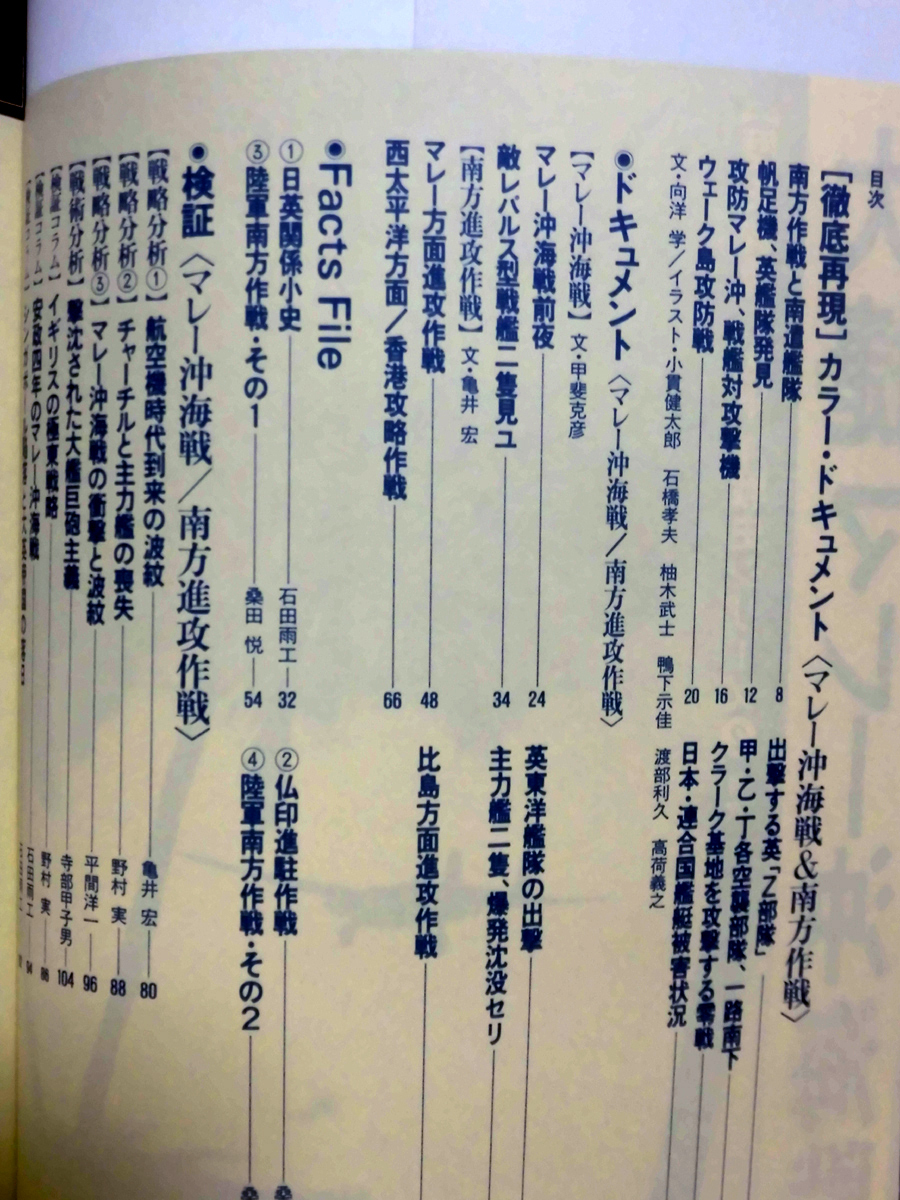 目次
［徹底再現］カラー・ドキュメント〈マレー沖海戦＆南方作戦〉
南方作戦と南遣艦隊 8
出撃する英「Z部隊」
帆足機、英艦隊発見 12
甲・乙・丁各空襲部隊、一路南下
攻防マレー沖、戦艦対攻撃機 16
クラーク基地を攻撃する零戦
ウェーク島攻防戦 20
日本・連合国艦艇被害状況
文・向洋 学／イラスト・小貫健太郎 石橋孝夫 柚木武士 鴨下示佳 渡部利久 高荷義之
●ドキュメント〈マレー沖海戦／南方進攻作戦〉
【マレー沖海戦】文・甲斐克彦
マレー沖海戦前夜 24
英東洋艦隊の出撃
敵レパルス型戦艦二隻見ユ 34
主力艦二隻、爆発沈没セリ
【南方進攻作戦】文・亀井 宏
マレー方面進攻作戦 48
比島方面進攻作戦
西太平洋方面／香港攻略作戦 66
●Facts File
①日英関係小史 石田雨工 32
②仏印進駐作戦
③陸軍南方作戦・その1 桑田 悦 54
④陸軍南方作戦・その2 桑
●検証〈マレー沖海戦／南方進攻作戦〉
【戦略分析①】航空機時代到来の波紋 亀井 宏 80
【戦略分析②】チャーチルと主力艦の喪失 野村 実 88
【戦略分析③】マレー沖海戦の衝撃と波紋 平間洋一 96
【戦術分析】撃沈された大艦巨砲主義 寺部甲子男 104
【検証コラム】イギリスの極東戦略 野村 実 86
【検証コラム】安政四年のマレー沖海戦 石田雨工 94